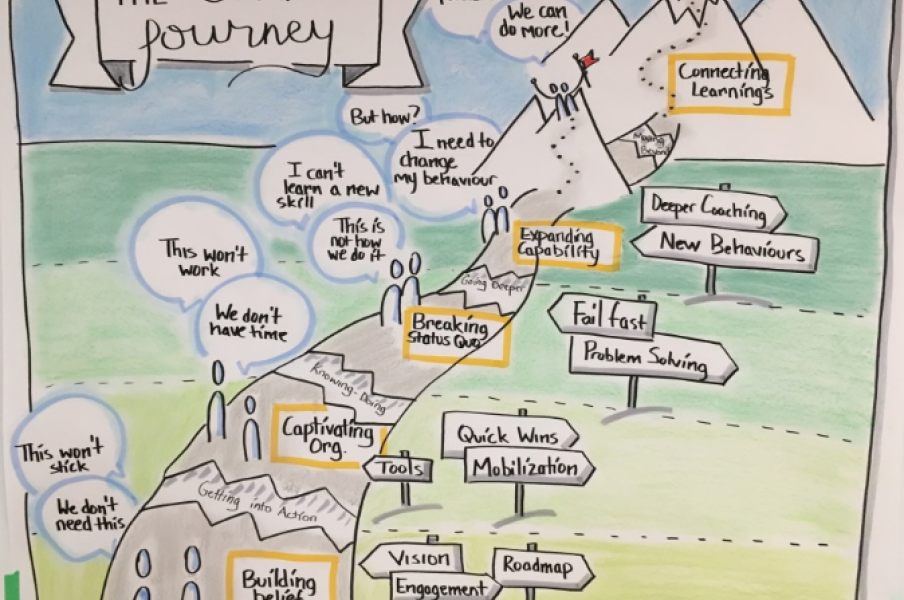 THE
Journey
We can
do more!
Connecting
Learnings
But how?
I need to
change
my behaviour
Moving
Beyond
I can't
learn a new
skill
Deeper Coaching
New Behaviours
This is
not how
we do it
Expanding
Capability
This won't
work
Going Deeper
We don't
have time
Breaking
Status Quo
Fail fast
Problem Solving
Knowing-Doing
Captivating
Org.
Quick Wins
Tools
Mobilization
This won't
stick
Getting into Action
We don't
need this
Vision
Roadmap
Engagement
Building
belief